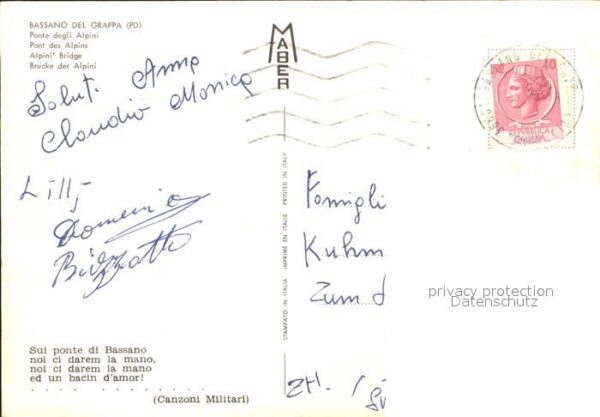 BASSANO DEL GRAPPA (PD)
Ponte degli Alpini
Pont des Alpins
Alpini' Bridge
Brucke der Alpini
MABER
Saluti Anna
Claudio Monica
Lilly
Domenico
STAMPATO IN ITALIA IMPRIMÉ EN ITALIE PRINTED IN ITALY
40
POSTE
REPVBBLICA
ITALIANA
Famigli
Kuhm
Zum d
ZH.
privacy protection
Datenschutz
Sul ponte di Bassano
noi ci darem la mano,
noi ci darem la mano
ed un bacin d'amor!
. . . . . . . . . . . .
(Canzoni Militari)